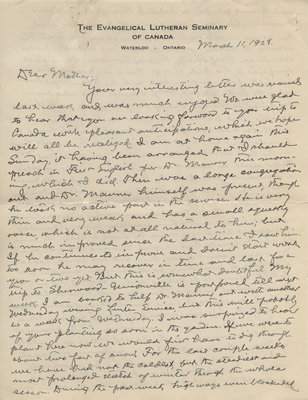 THE EVANGELICAL LUTHERAN SEMINARY
OF CANADA
WATERLOO - ONTARIO
March 11, 1929.
Dear Mother,
Your very interesting letter was received
last week and was much enjoyed. We were glad
to hear that you are looking forward to your trip to
Canada with pleasant anticipations, which we hope
will all be realized. I am at home again this
Sunday, it having been arranged that I should
preach in First English for Dr. Maurer this morn-
ing, which I did. There was a large congregation
out and Dr. Maurer himself was present, though
he took no active part in the service. He is very
thin and very weak, and has a small squeaky
voice, which is not at all natural to him, but
is much improved since the last time I saw him.
If he continues to improve and doesn't start work
too soon he may recover in time and last for a
year or two yet. But this is somewhat doubtful. My
trip to Sherwood, Unionville is postponed till next
week. I am booked to help Dr. Maurer out in another
Wednesday evening Lenten service, but this will probably
be a week from Wednesday. I was surprised to hear
of your planting so soon in the garden. If we were to
plant here now we would first have to dig through
about two feet of snow. For the last couple weeks
we have had not the coldest, but the steadiest and
most prolonged stretch of winter through the whole
season. During the past week highways were blockaded